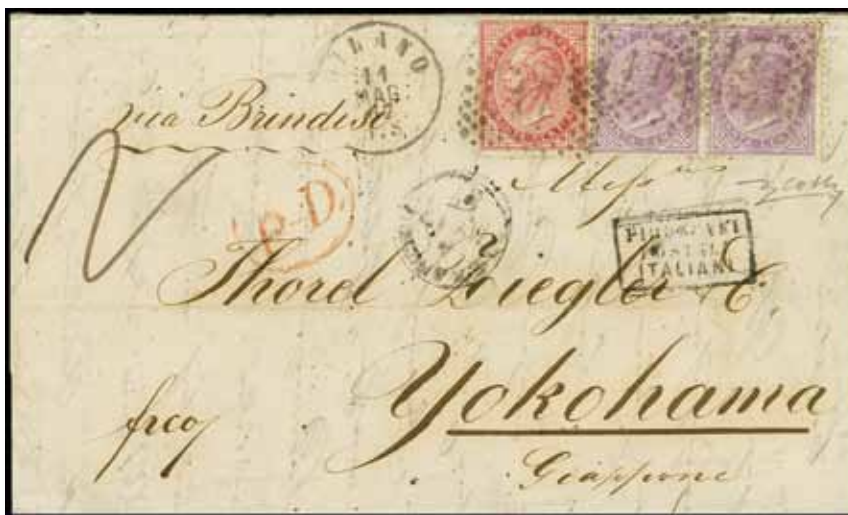 MILANO
11
MAG.
via Brindisi
P.D.
Mess^rs
PIROSCAFI
POSTALI
ITALIANI
Thorel Ziegler & C.
frco
Yokohama
Giappone